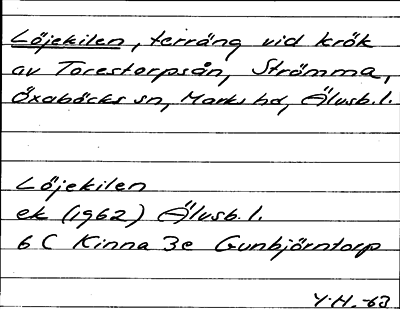 Löjekilen, terräng vid krök
av Torestorpsån, Strömma,
Öxabäcks sn, Marks hd, Älvsb. l.
Löjekilen
ek (1962) Älvsb. l.
6 C Kinna 3e Gunbjörntorp
Y.H. -63